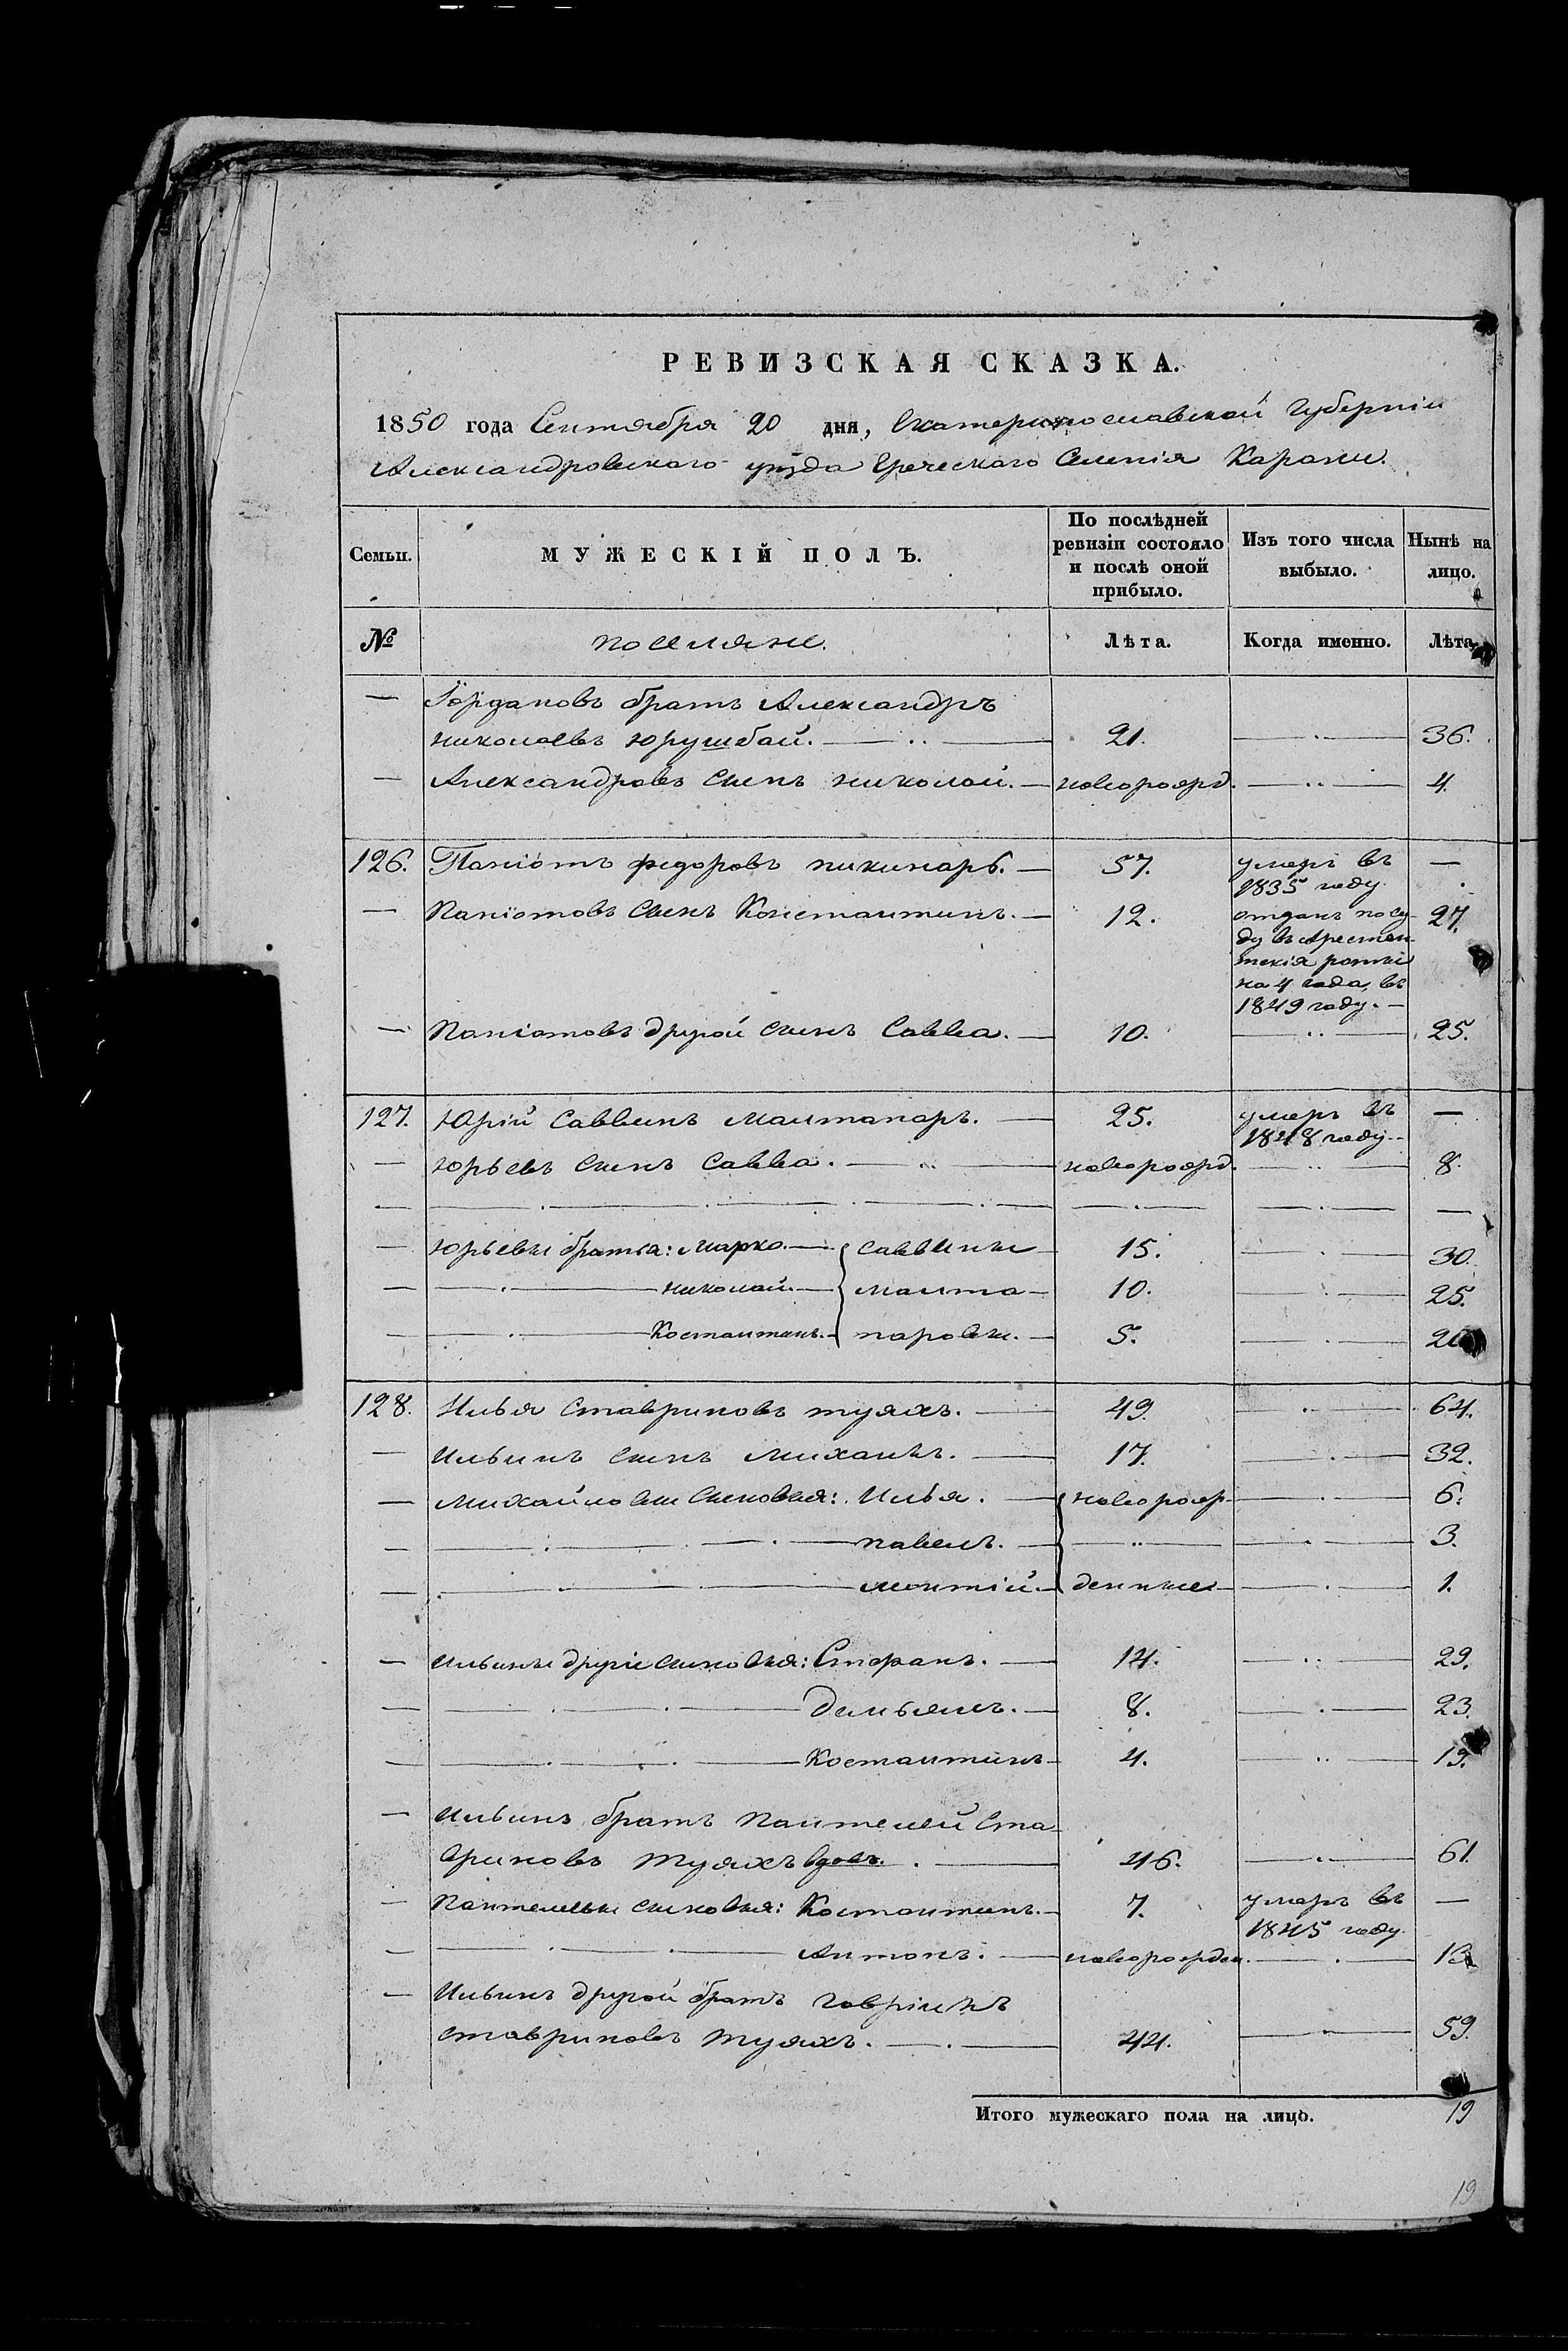 РЕВИЗСКАЯ СКАЗКА.
1850 года Сентября 20 дня, Екатеринославской Губерніи
Александровскаго уѣзда Греческаго Селенія Карани.
Семьи. МУЖЕСКІЙ ПОЛЪ. По послѣдней ревизіи состояло и послѣ оной прибыло. Изъ того числа выбыло. Нынѣ на лицо.
№ поселяне. Лѣта. Когда именно. Лѣта.
— Іорданов братъ Александръ
Николаевъ Юрушбай. — 21. — 36.
— Александровъ сынъ Николай. — новорожд. — 4.
126. Паніотъ Федоровъ пикинаръ. — 57. умеръ въ —
1835 году.
— Паніотовъ сынъ Константинъ. — 12. отданъ по су- 27.
ду въ Арестан-
тскія роты
на 4 года, въ
1849 году. —
— Паніотовъ другой сынъ Савва. — 10. — 25.
127. Юрій Саввинъ Малтапаръ. — 25. умеръ въ —
1848 году. —
— Юрьевъ сынъ Савва. — новорожд. — 8.
— Юрьевы братья: Марко. — Саввины — 15. — 30.
— Николай. — Малта- 10. — 25.
— Костантинъ. — паровы. — 5. — 20
128. Илья Ставриновъ Туяхъ. — 49. — 64.
— Ильинъ сынъ Михаилъ. — 17. — 32.
— Михайловы сыновья: Илья. — новорож- — 6.
— Павелъ. — — 3.
— Леонтій. — денные — 1.
— Ильины другіе сыновья: Стефанъ. — 14. — 29.
— Демьянъ. — 8. — 23.
— Костантинъ — 4. — 19.
— Ильинъ братъ Пантелей Ста-
вриновъ Туяхъ вдовъ. — 46. — 61.
— Пантелеевы сыновья: Костантинъ. — 7. умеръ въ —
1845 году.
— Антонъ. — новорожден. — 13
— Ильинъ другой братъ Гавріилъ
Ставриновъ Туяхъ. — 44. — 59.
Итого мужескаго пола на лицо. 19
19